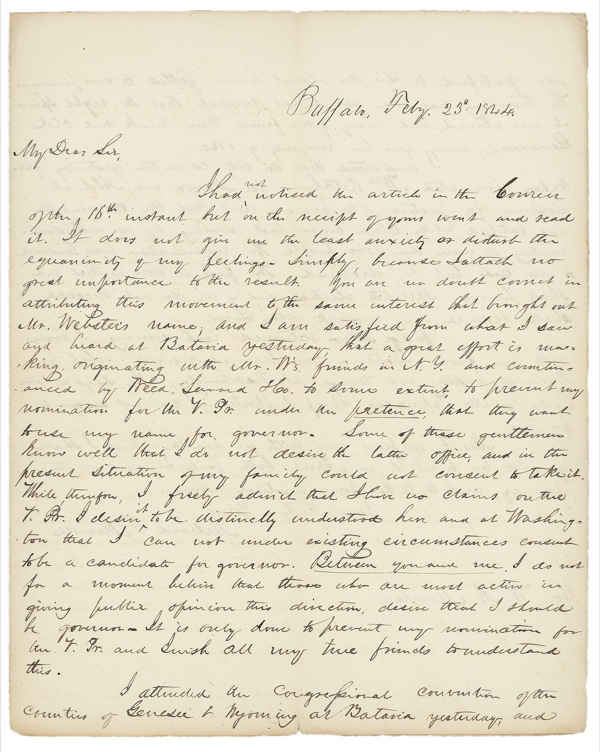 Buffalo, Feby. 23d 1844.
My Dear Sir,
I had not noticed the article in the Courier
of the 16th instant but on the receipt of yours went and read
it. It does not give me the least anxiety or disturb the
equanimity of my feelings - Simply, because I attach no
great importance to the result. You are no doubt correct in
attributing this movement to the same interest that brought out
Mr. Websters name; and I am satisfied from what I saw
and heard at Batavia yesterday, that a great effort is ma-
-king originating with Mr. Ws. friends in N. Y. and counten-
-anced by Weed, Seward & Co. to some extent, to prevent my
nomination for the V. Pr. under the pretence, that they want
to use my name for governor. Some of these gentlemen
know well that I do not desire the latter office, and in the
present situation of my family could not consent to take it.
While therefore, I freely admit that I have no claims on the
V. Pr. I desire it to be distinctly understood here and at Washing-
-ton that I can not under existing circumstances consent
to be a candidate for governor. Between you and me, I do not
for a moment believe that those who are most active in
giving public opinion this direction, desire that I should
be governor - It is only done to prevent my nomination for
the V. Pr. and I wish all my true friends to understand
this.
I attended the Congressional convention of the
counties of Genesee & Wyoming at Batavia yesterday, and